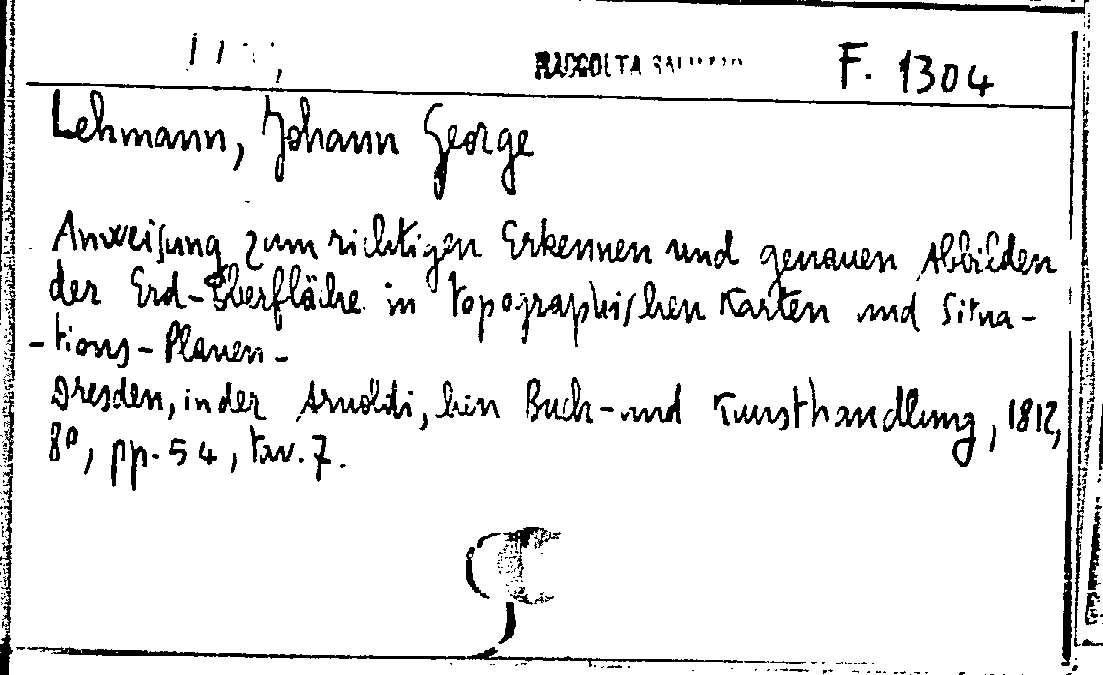 RACCOLTA F. 1304
Lehmann, Johann George
Anweisung zum richtigen Erkennen und genauen Abbilden
der Erd-Oberfläche in topographischen Karten und Situa-
-tions-Planen-
Dresden, in der Arnoldischen Buch-und Kunsthandlung, 1812,
8º, pp. 54, tav. 7.